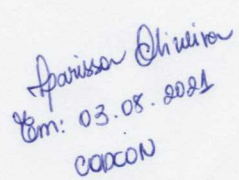 Larissa Oliveira
Em: 03.08.2021
CODCON